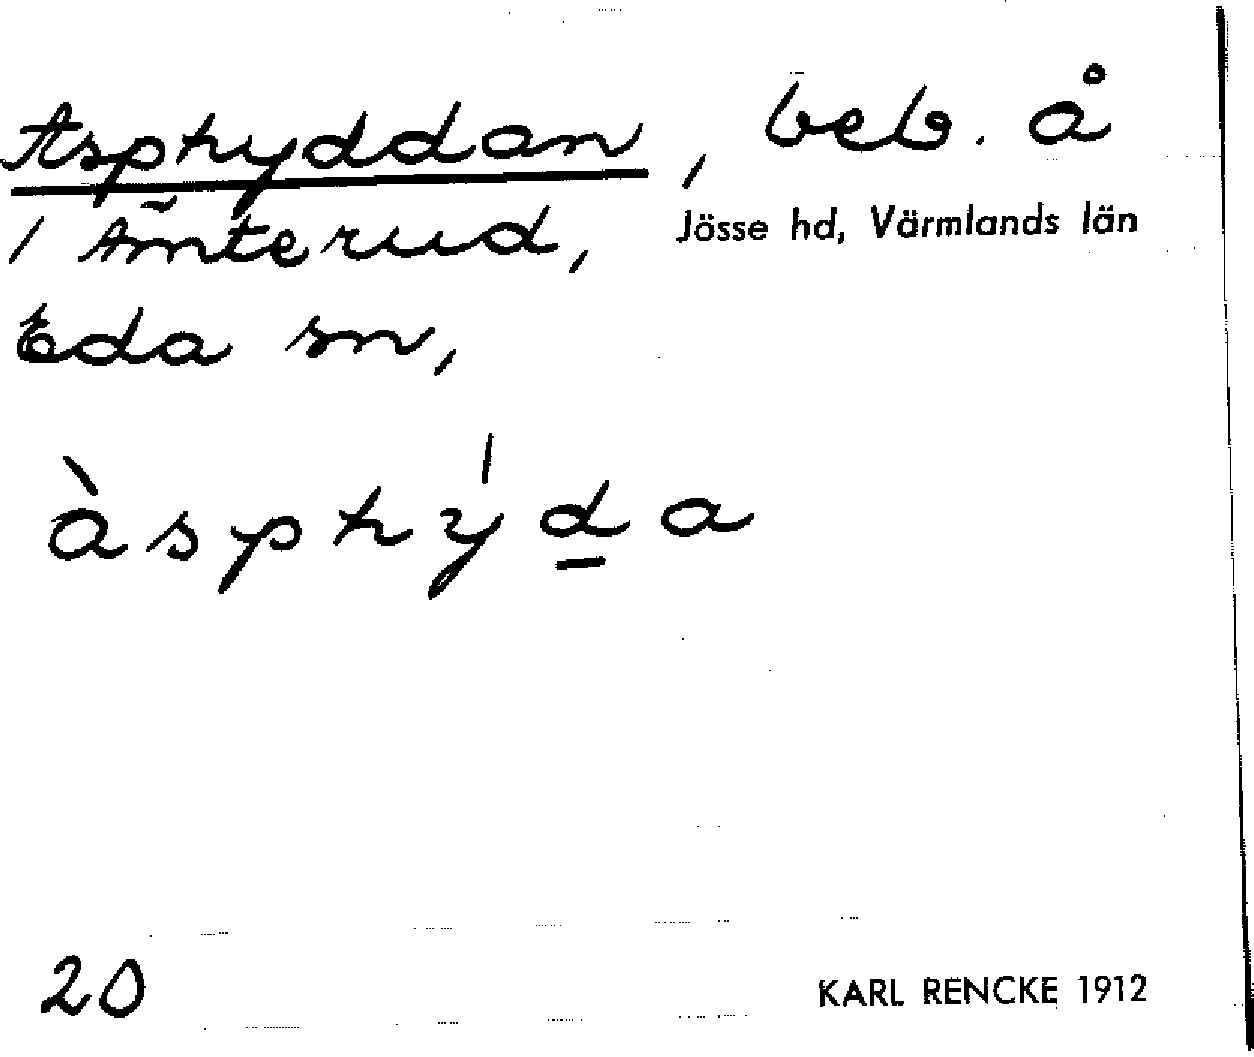 Asphyddan, beb. å
1 Ämterud,
Jösse hd, Värmlands län
Eda sn,
àsphýd̲a
20
KARL RENCKE 1912